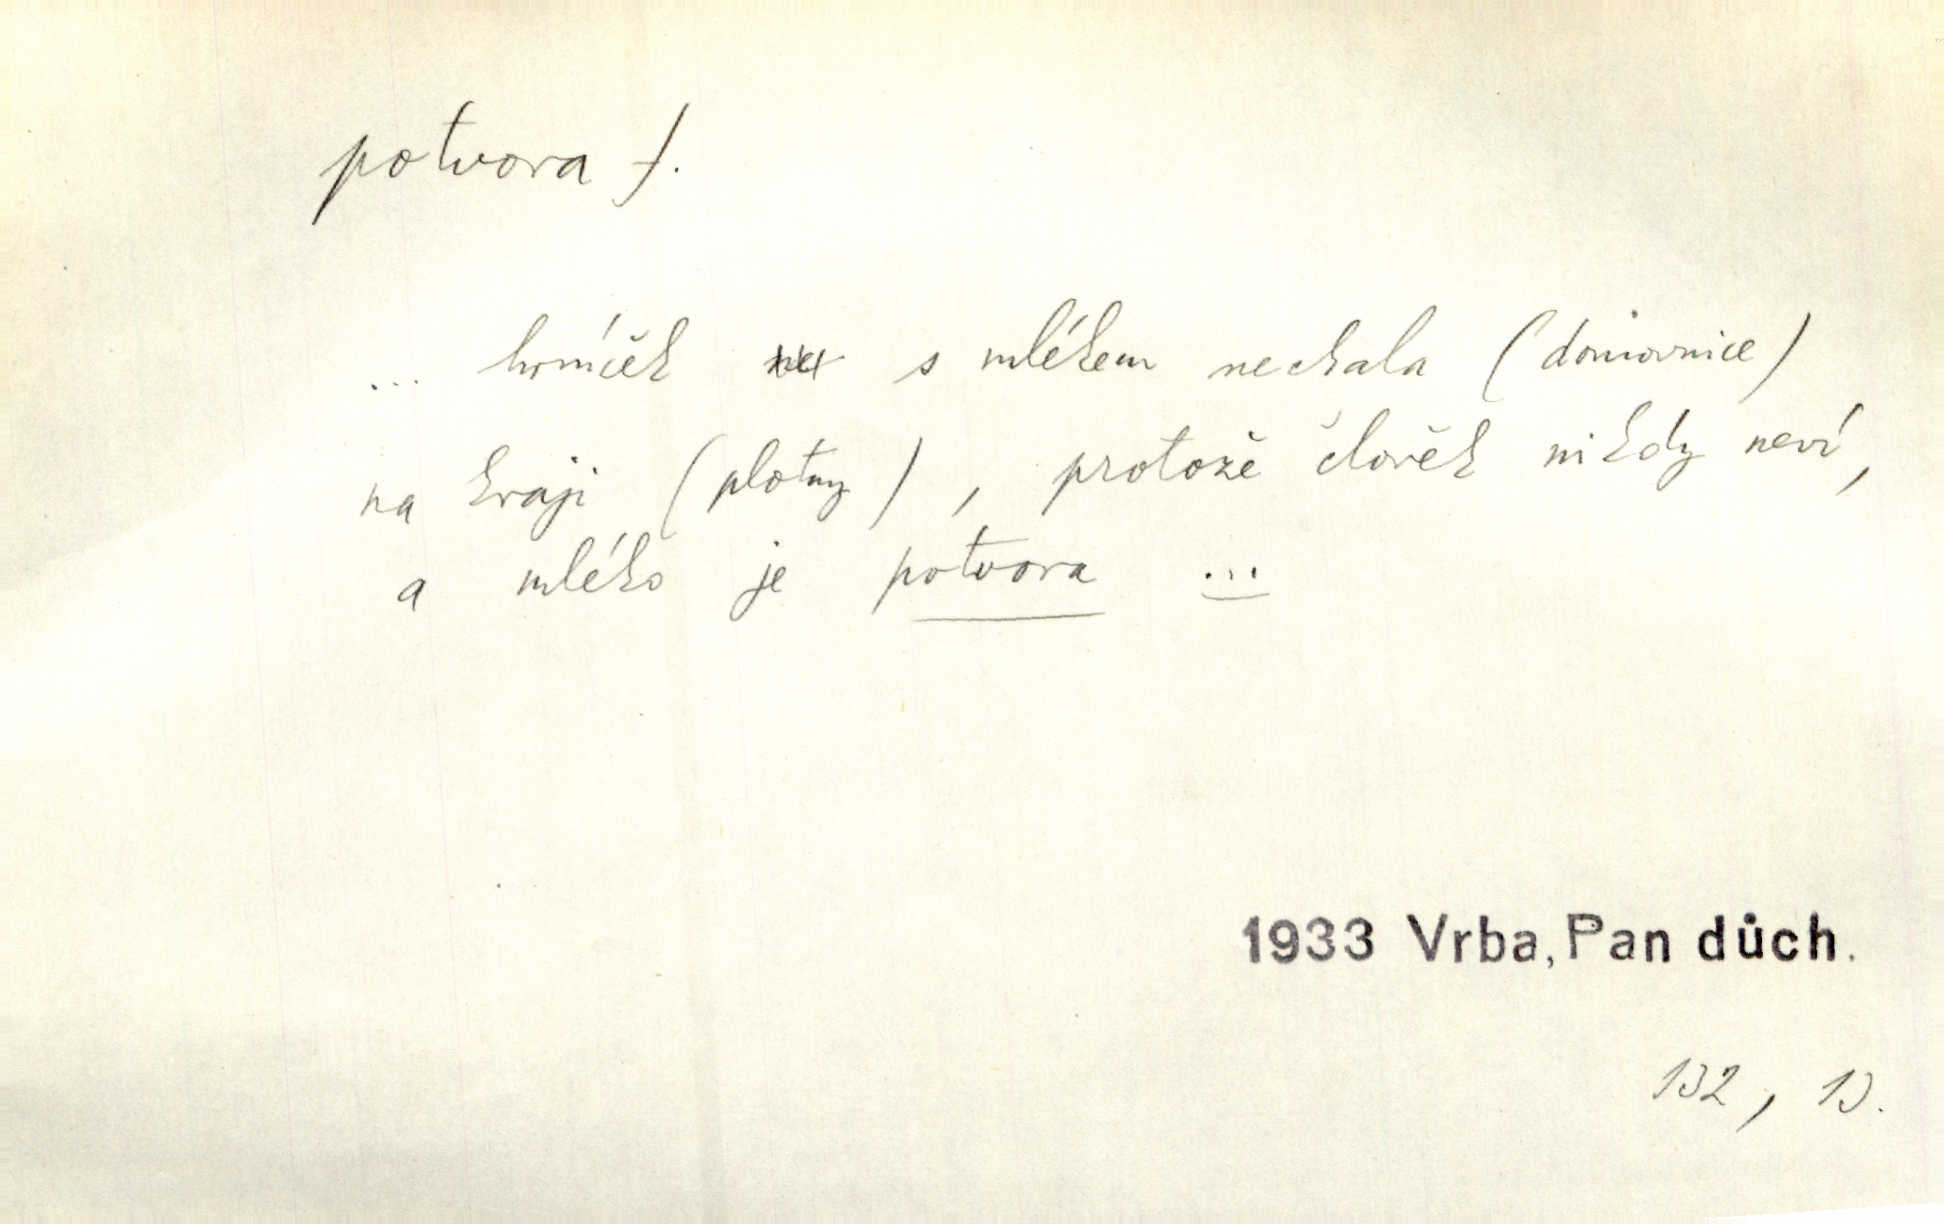 potvora f.
... hrníček s mlékem nechala (domovnice)
na kraji (plotny), protože člověk nikdy neví,
a mléko je potvora ...
1933 Vrba, Pan důch.
132, 13.